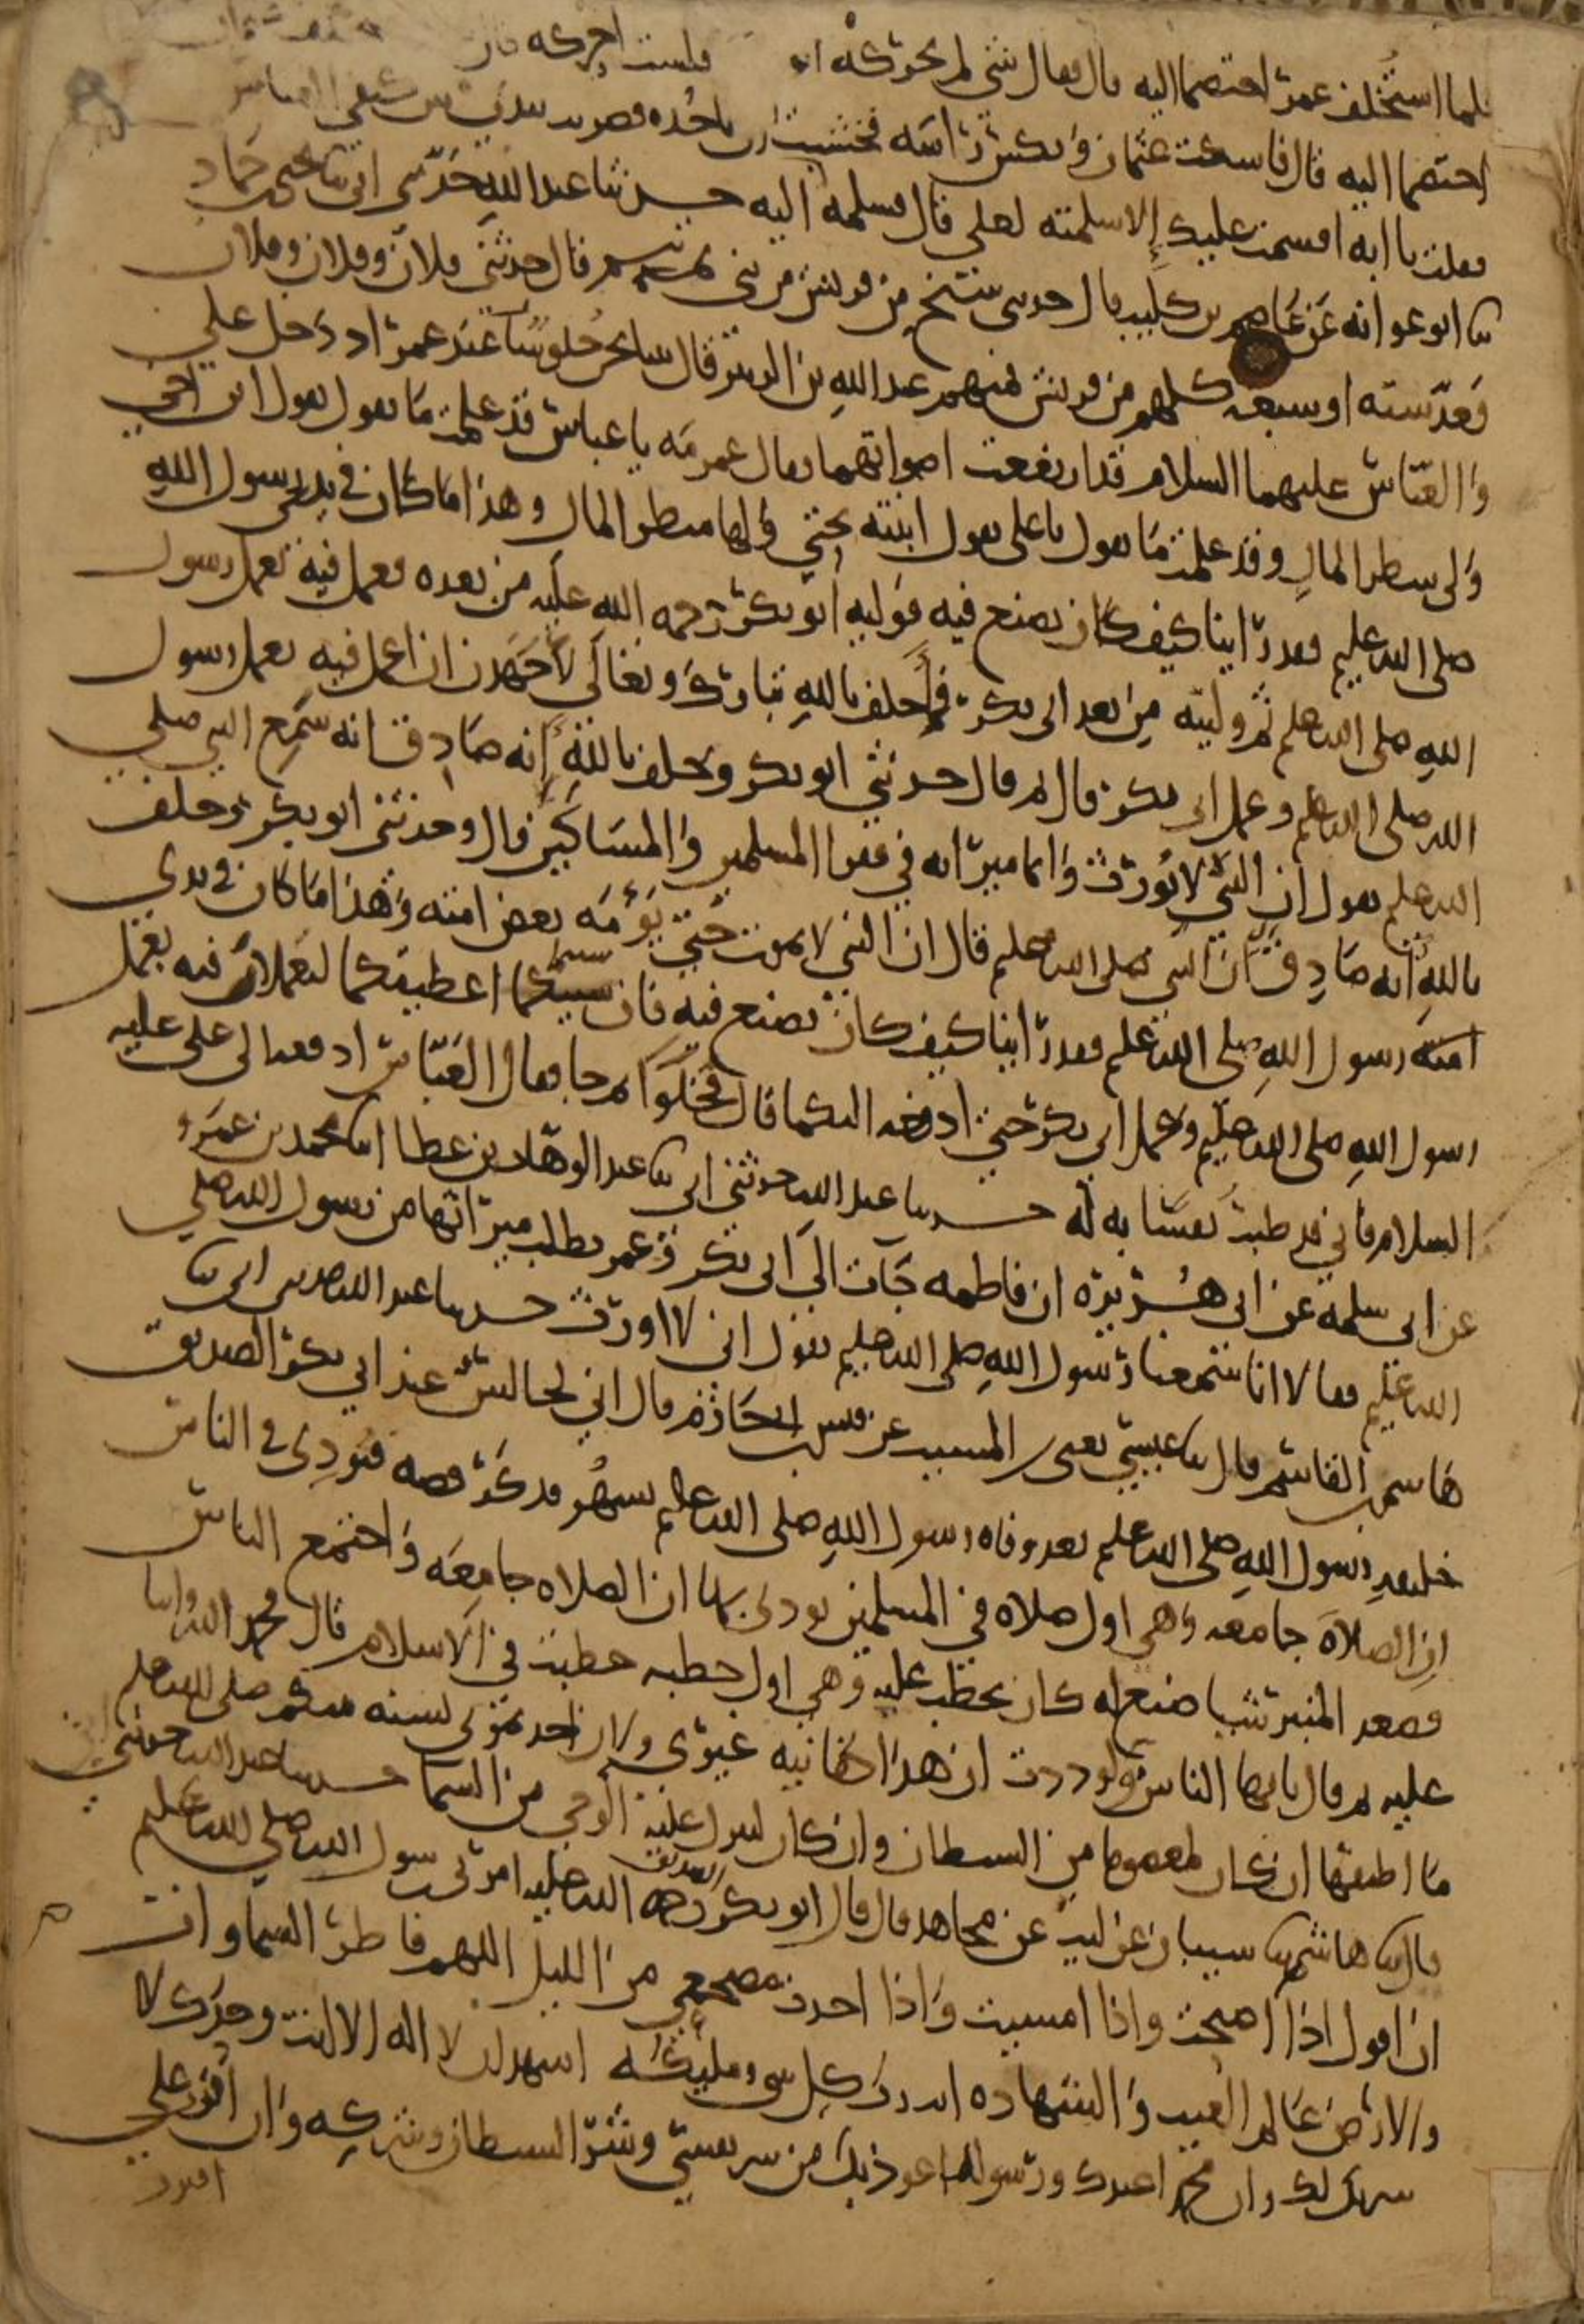 فلما استُخلف عمر اختصما اليه فقال شي لم يحركه ابو بكر فلست احركه قال فلما استخلف عثمان
اختصما اليه قال فاسكت عثمان ونكس راسه فخشيت ان ياخذه فضربت بيدي بين كتفي العباس
فقلت يا ابه اقسمت عليك إلا سلمته لعلي قال فسلمه اليه حدثنا عبد الله حدثني ابي ثنا يحيى بن حماد
ثنا ابو عوانه عن عاصم بن كليب قال حدثني شيخ من قريش من بني تيم قال حدثني فلان وفلان وفلان
فعد سته او سبعه كلهم من قريش فيهم عبد الله بن الزبير قال بينا نحن جلوسًا عند عمر اذ دخل علي
والعباس عليهما السلام قد ارتفعت اصواتهما فقال عمر مه يا عباس قد علمت ما تقول تقول ابن اخي
ولي شطر المال وقد علمت ما تقول يا علي تقول ابنته تحتي ولها شطر المال وهذا ما كان في يدي رسول الله
صلى الله عليه وسلم فقد راينا كيف كان يصنع فيه فوليه ابو بكر رحمه الله عليه من بعده فعمل فيه بعمل رسول
الله صلى الله عليه وسلم ثم وليته من بعد ابي بكر فاحلف بالله تبارك وتعالى لاجهدن ان اعمل فيه بعمل رسول
الله صلى الله عليه وسلم وعمل ابي بكر قال ثم قال حدثني ابو بكر وحلف بالله إنه صادق انه سمع النبي صلى
الله عليه وسلم يقول ان النبي لا يورث وانما ميراثه في فقرا المسلمين والمساكين قال وحدثني ابو بكر وحلف
بالله انه صادق ان النبي صلى الله عليه وسلم قال ان النبي لا يموت حتى يؤمه بعض امته وهذا ما كان في يدي
رسول الله صلى الله عليه وسلم فقد راينا كيف كان يصنع فيه فان شيتما اعطيتكما لتعملان فيه بعمل
رسول الله صلى الله عليه وسلم وعمل ابي بكر حتى ادفعه اليكما قال فخلوا ثم جا فقال العباس ادفعه الى علي عليه
السلام فاني قد طبت نفسًا به له حدثنا عبد الله حدثني ابي ثنا عبد الوهاب بن عطا انا محمد بن عمرو
عن ابي سلمه عن ابي هريره ان فاطمه جات الى ابي بكر وعمر تطلب ميراثها من رسول الله صلى
الله عليه وسلم فقالا انا سمعنا رسول الله صلى الله عليه وسلم يقول اني لا اورث حدثنا عبد الله حدثني ابي ثنا
هاشم بن القاسم قال ثنا عيسى يعني ابن المسيب عن قيس بن ابي حازم قال اني لجالس عند ابي بكر الصديق
خليفه رسول الله صلى الله عليه وسلم بعد وفاه رسول الله صلى الله عليه وسلم بشهر فذكر قصه فنودي في الناس
ان الصلاه جامعه وهي اول صلاه في المسلمين نودي بها ان الصلاه جامعه واجتمع الناس
فصعد المنبر شيا صنع له كان يخطب عليه وهي اول خطبه خطبت في الاسلام قال فحمد الله واثنا
عليه ثم قال يا ايها الناس ولوددت ان هذا كفانيه غيري ولان اخذتموني بسنه نبيكم صلى الله عليه وسلم
ما اطيقها ان كان لمعصوما من الشيطان وان كان لينزل عليه الوحي من السما حدثنا عبد الله حدثني ابي
قال ثنا هاشم ثنا شيبان عن ليث عن مجاهد قال قال ابو بكر الصديق رحمه الله عليه امرني رسول الله صلى الله عليه وسلم
ان اقول اذا اصبحت واذا امسيت واذا اخذت مضجعي من الليل اللهم فاطر السماوات
والارض عالم الغيب والشهاده انت رب كل شي ومليكه اشهد ان لا اله الا انت وحدك لا
شريك لك وان محمدا عبدك ورسولك اعوذ بك من شر نفسي وشر الشيطان وشركه وان اقترف على
اقترف